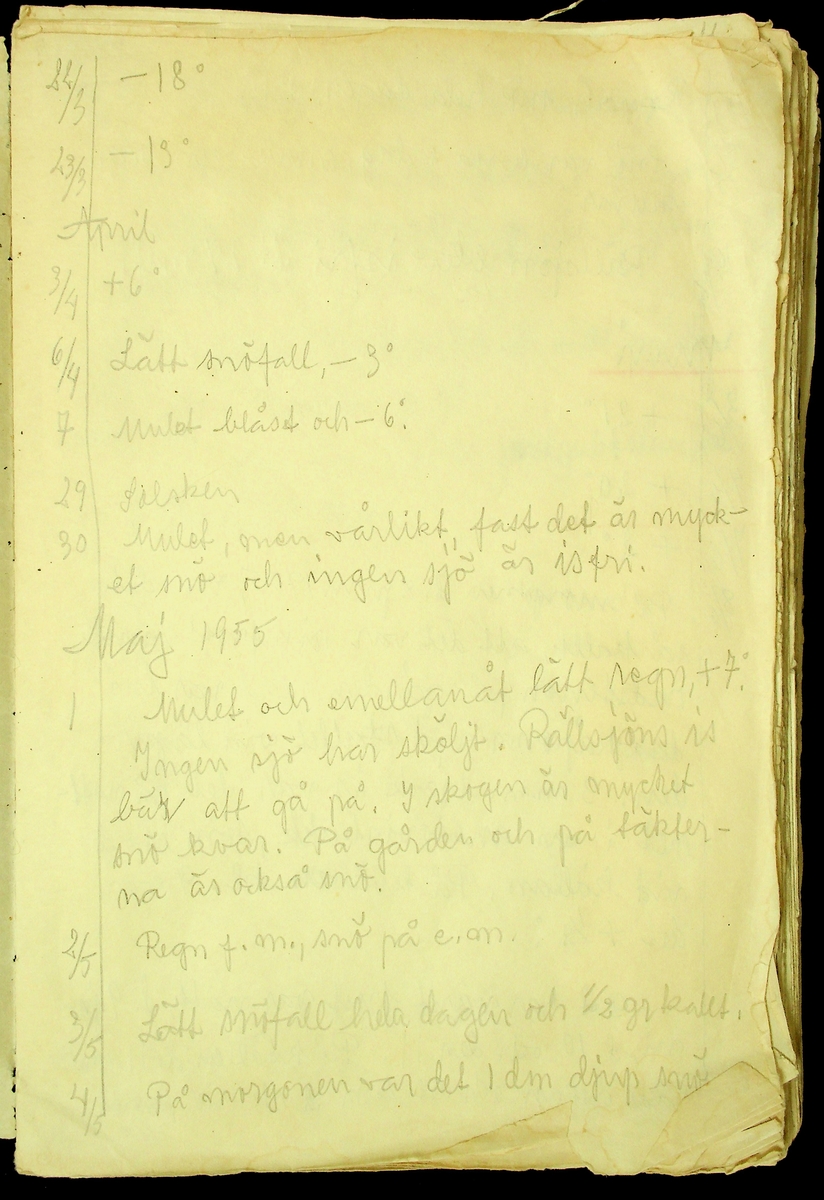 22/3 -18°
23/3 -13°
April
3/4 +6°
6/4 Lätt snöfall, -3°
7 Mulet blåst och -6°.
29 Solsken
30 Mulet, men vårlikt, fast det är myck-
et snö och ingen sjö är isfri.
Maj 1955
1 Mulet och emellanåt lätt regn, +7°.
Ingen sjö har sköljt. Rällsjöns is
bär att gå på. I skogen är mycket
snö kvar. På gården och på täkter-
na är också snö.
2/5 Regn f.m., snö på e.m.
3/5 Lätt snöfall hela dagen och 1/2 gr kallt.
4/5 På morgonen var det 1 dm djup snö